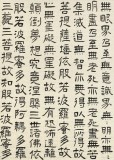 無眼界乃至無意識界無無
明亦無無明盡乃至無老死亦
無老死盡無苦
集滅道無智亦無得以無所得
故菩提薩埵依般若波羅蜜多
故心無罣礙無罣礙故無有恐怖遠離
顛倒夢想究竟涅槃三世諸佛依
般若波羅蜜多故得阿耨多羅
三藐三菩提故知般若波羅蜜多